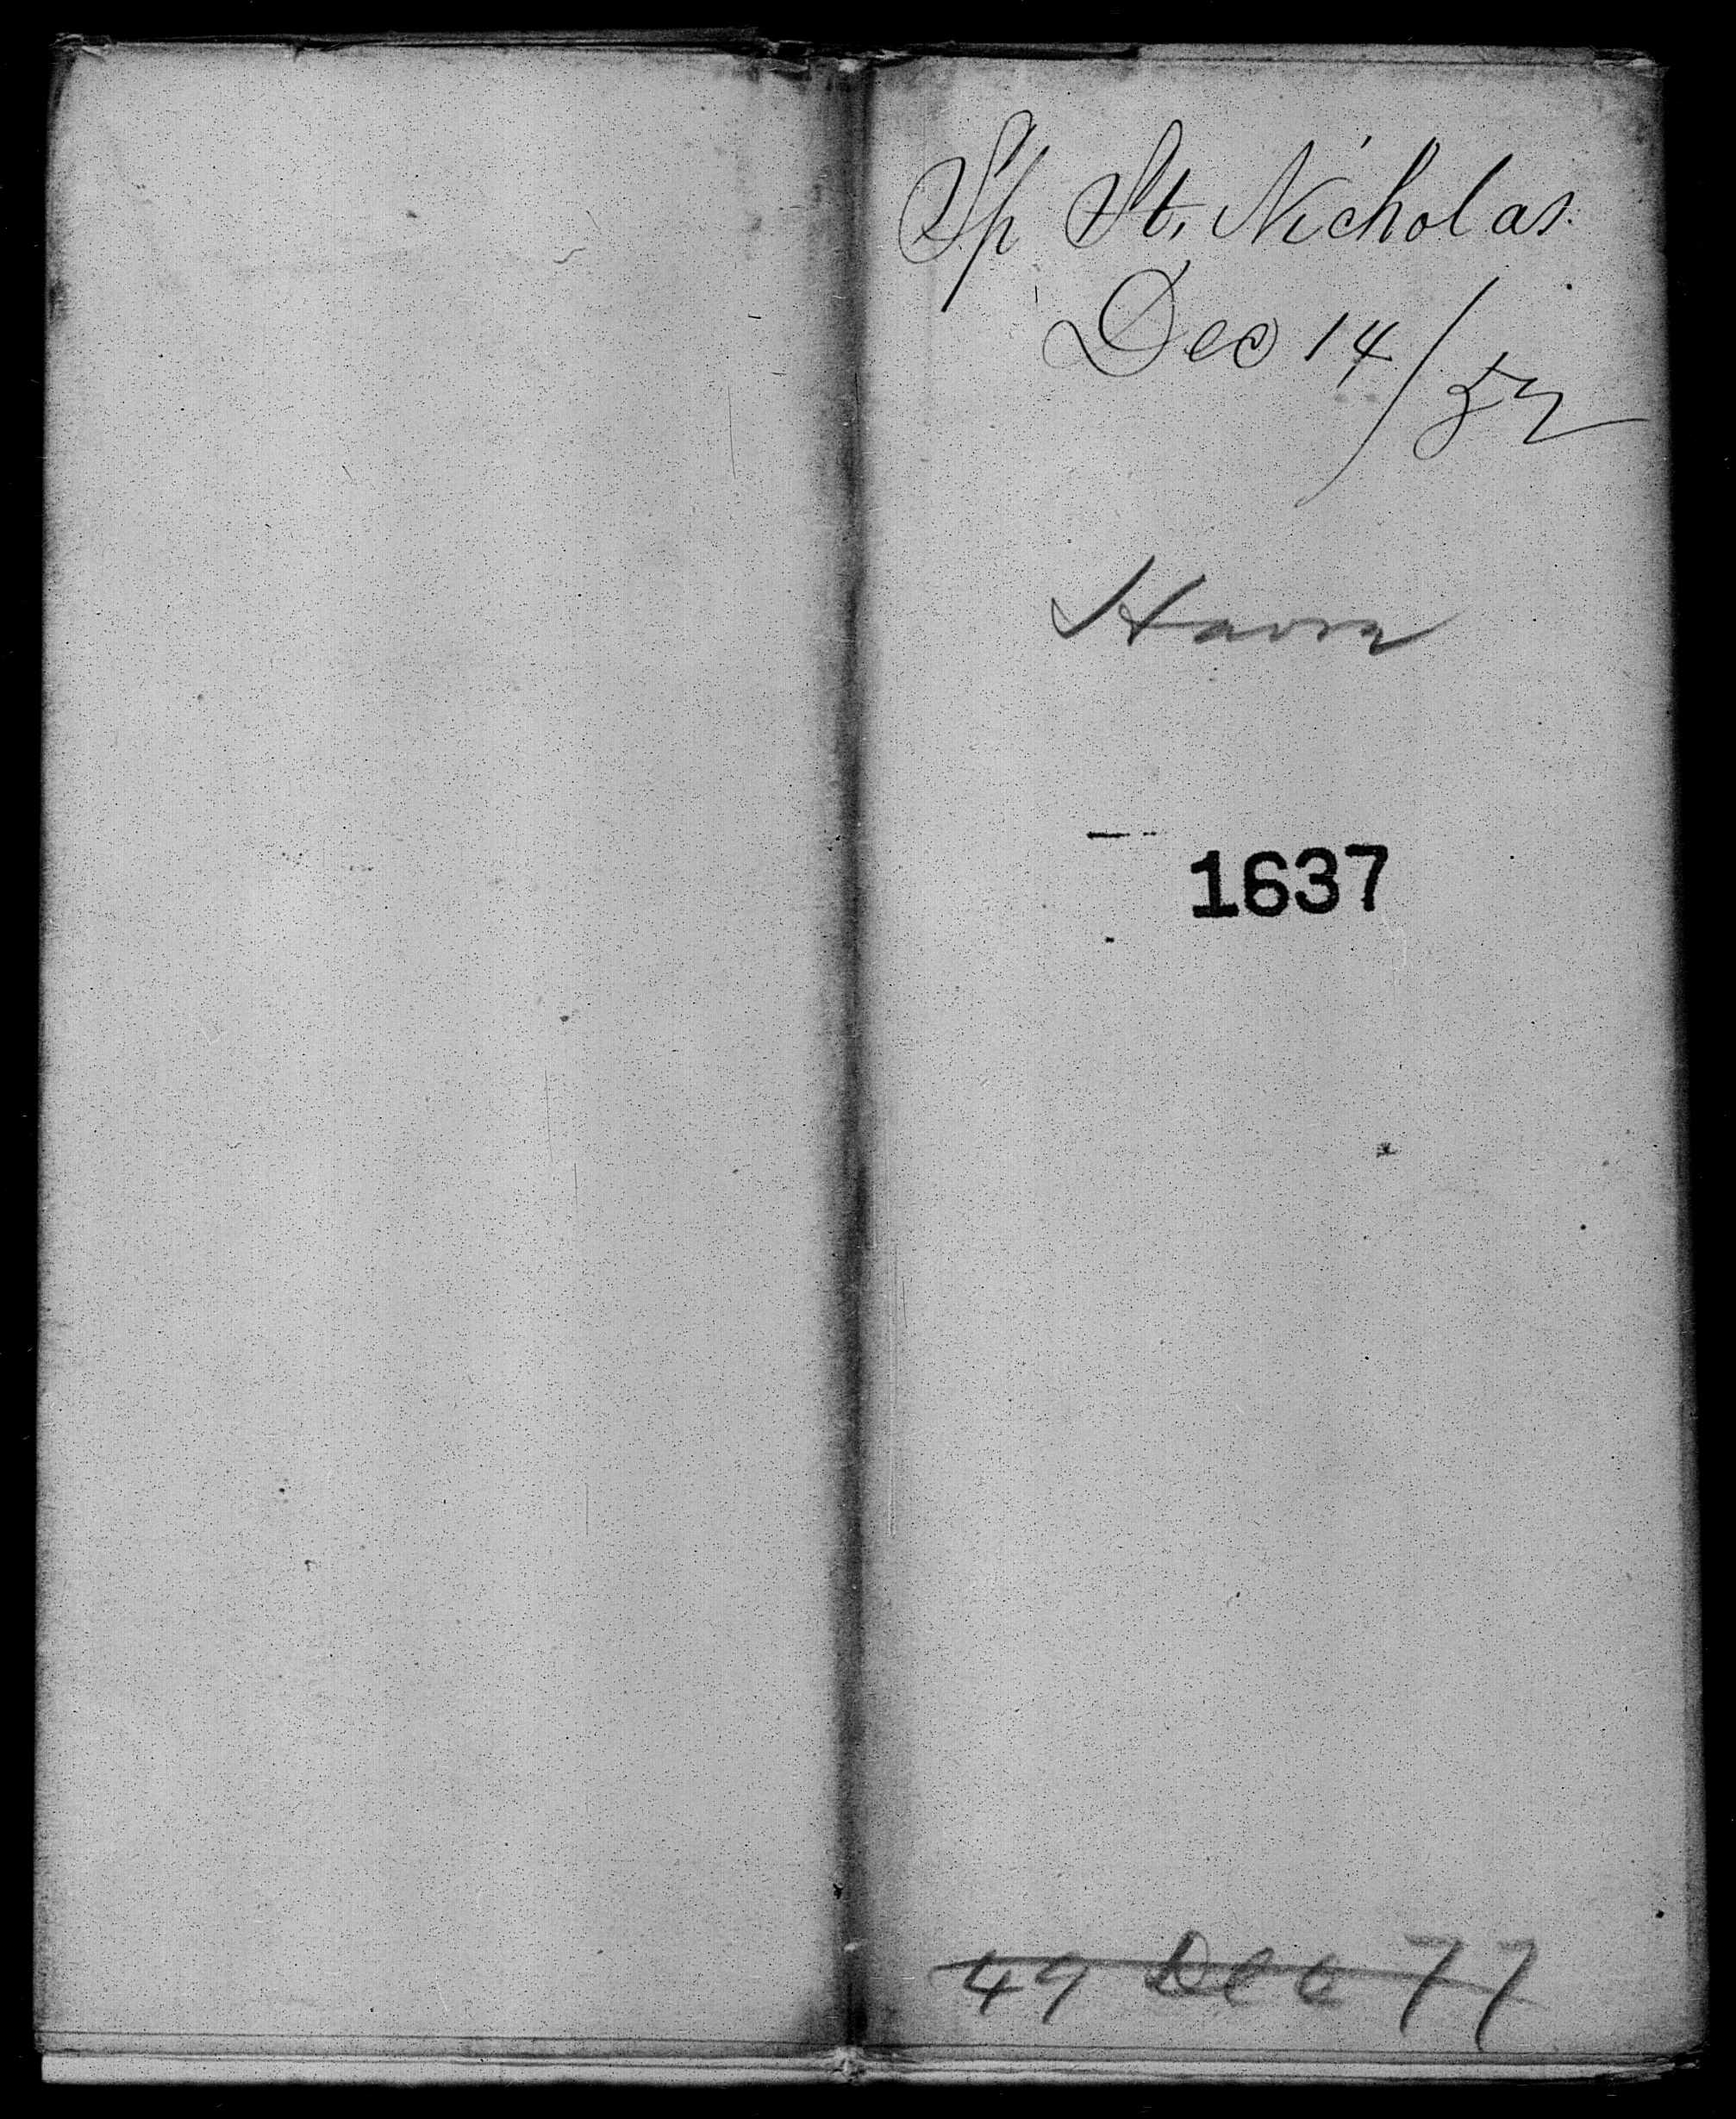 Sp St. Nicholas.
Dec 14/52
Havre
1637
49 Dec 77